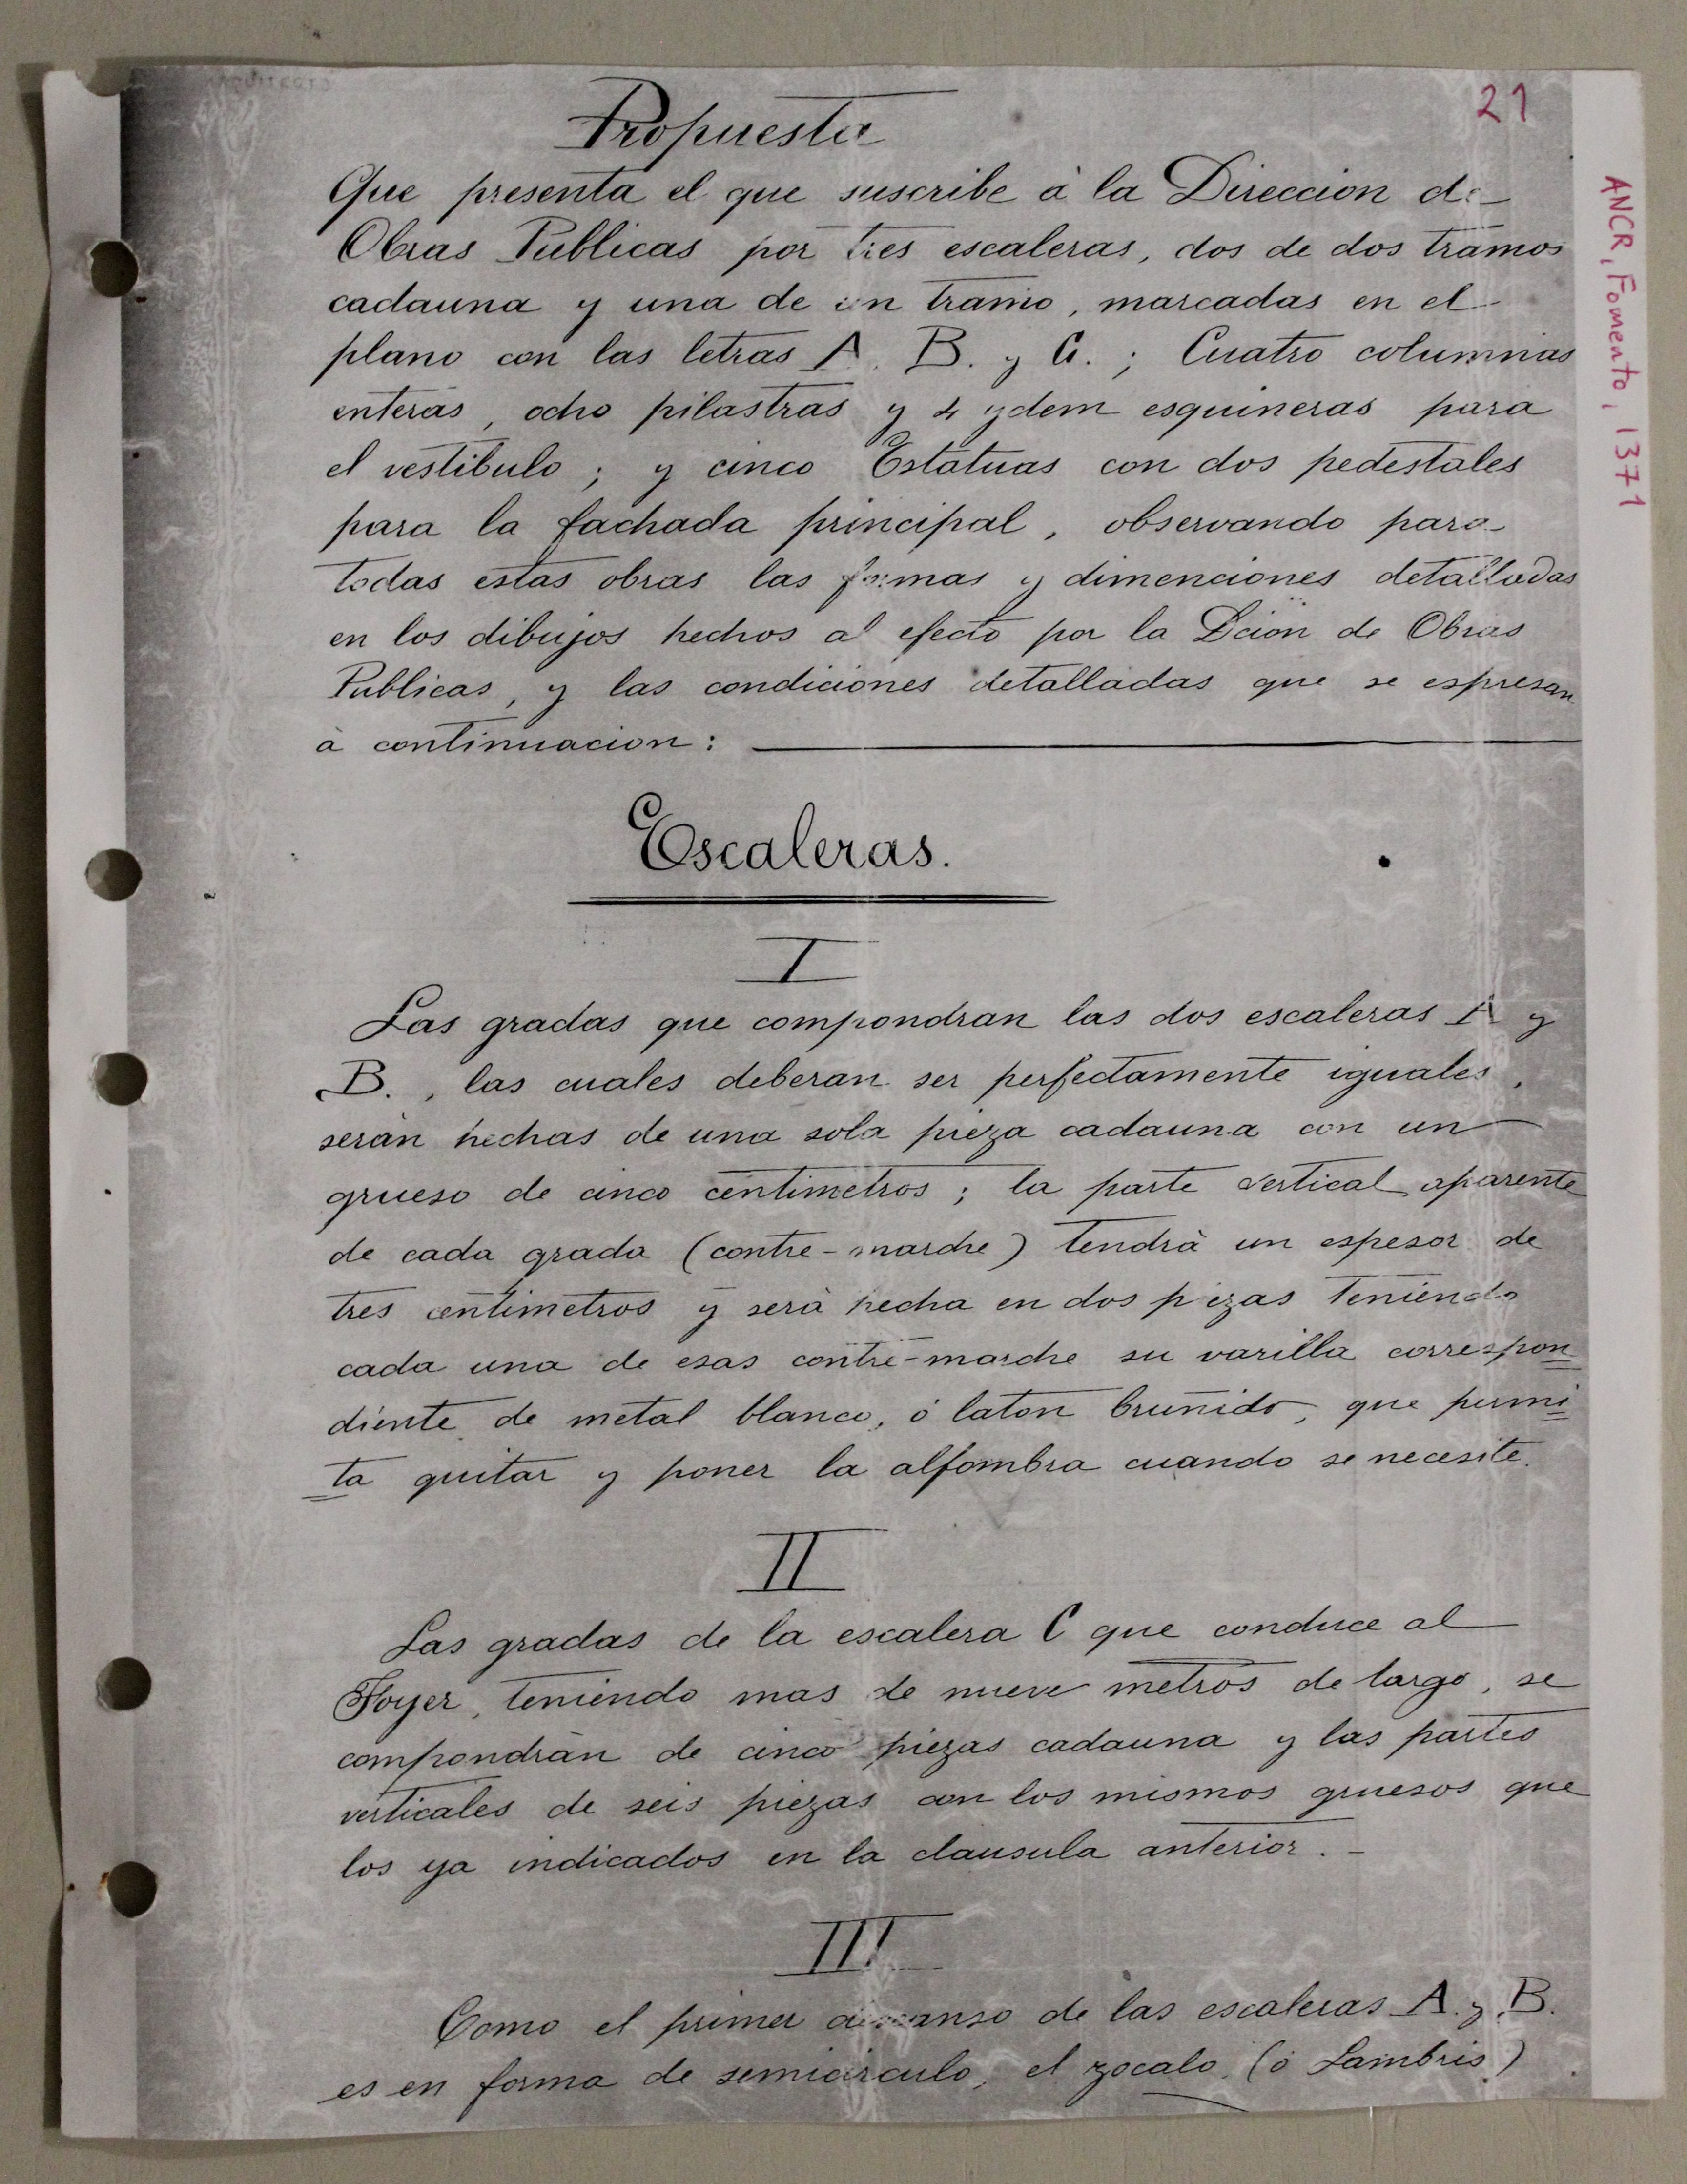 21
ANCR, Fomento, 1371
Propuesta
Que presenta el que suscribe à la Direccion de
Obras Publicas por tres escaleras, dos de dos tramos
cadauna y una de un tramo, marcadas en el
plano con las letras A. B. y C. ; Cuatro columnas
enteras, ocho pilastras y 4 ydem esquineras para
el vestibulo ; y cinco Estatuas con dos pedestales
para la fachada principal, observando para
todas estas obras las formas y dimenciones detalladas
en los dibujos hechos al efecto por la Dcion de Obras
Publicas, y las condiciones detalladas que se espresan
à continuacion :
Escaleras.
I
Las gradas que compondran las dos escaleras A y
B. , las cuales deberan ser perfectamente iguales,
seràn hechas de una sola pieza cadauna con un
grueso de cinco centimetros ; la parte vertical aparente
de cada grada (contre-marche) tendrà un espesor de
tres centimetros y serà hecha en dos piezas teniendo
cada una de esas contre-marche su varilla correspon=
diente de metal blanco, ó laton bruñido, que permi=
ta quitar y poner la alfombra cuando se necesite.
II
Las gradas de la escalera C que conduce al
Foyer, teniendo mas de nueve metros de largo, se
compondràn de cinco piezas cadauna y las partes
verticales de seis piezas con los mismos gruesos que
los ya indicados en la clausula anterior. -
III
Como el primer descanso de las escaleras A. y B.
es en forma de semicirculo, el zocalo (ó Lambris)